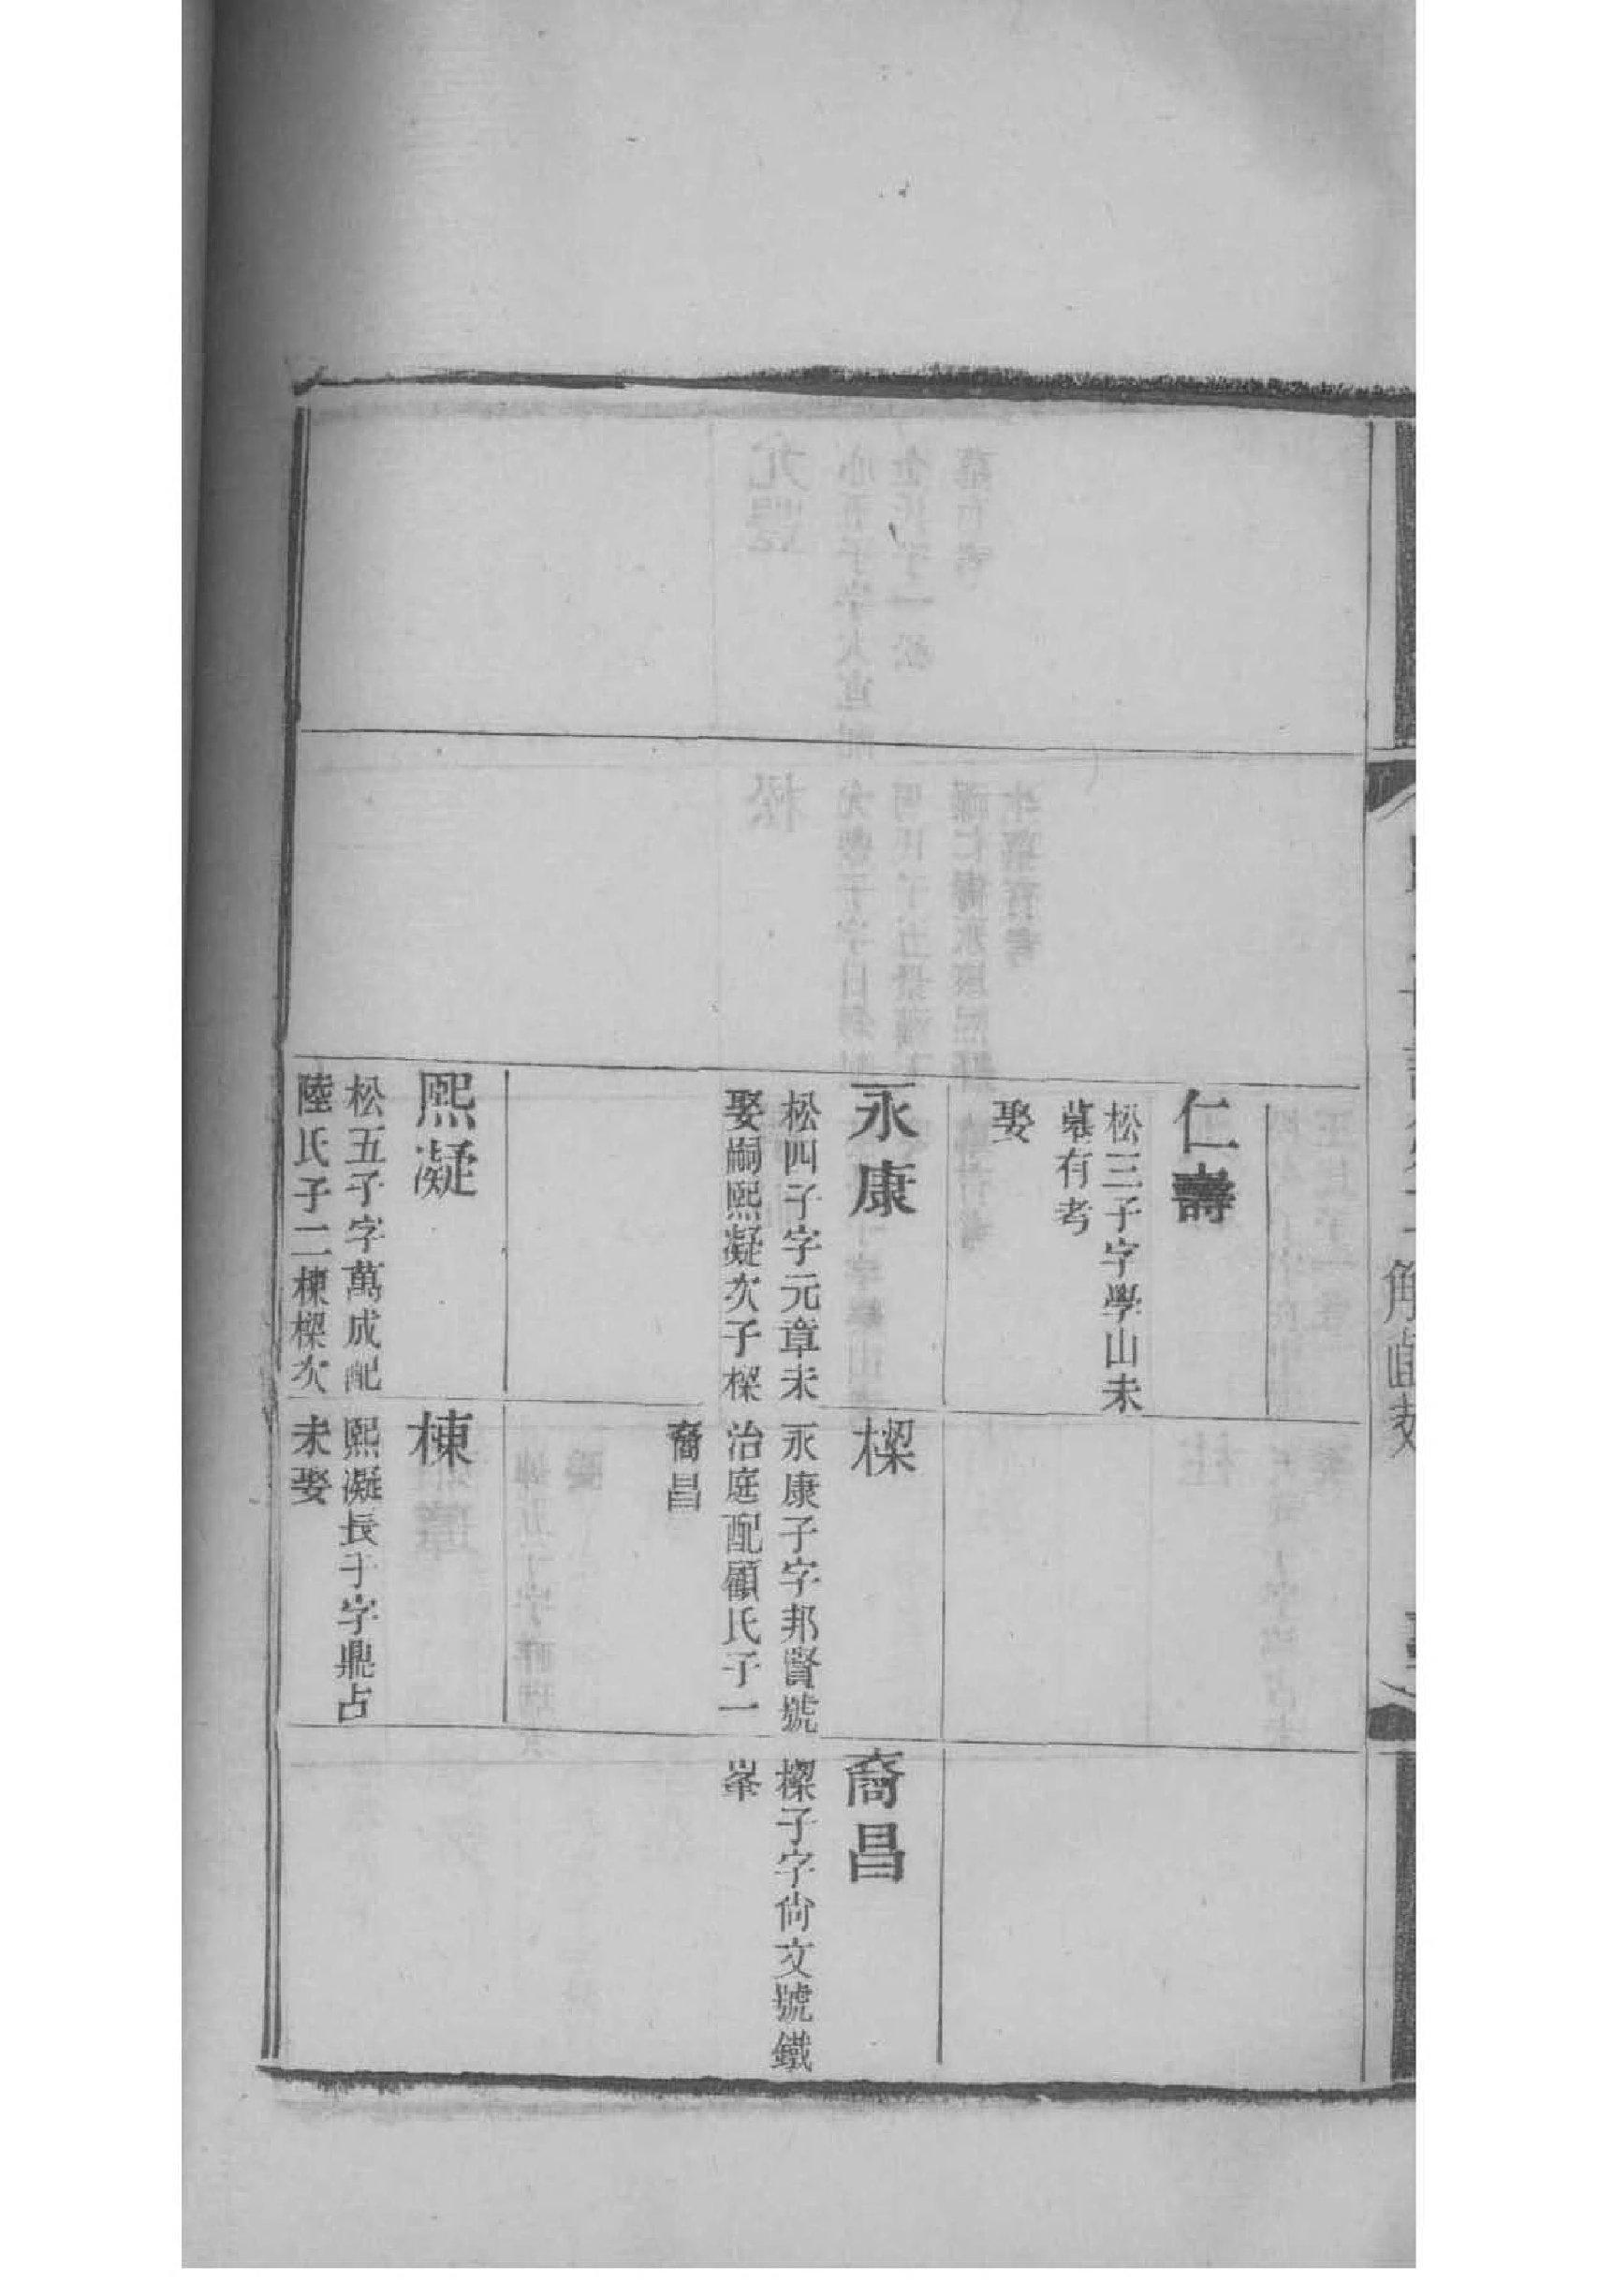 仁壽
松三子字學山未
娶
墓有考
永康
松四子字元章未
娶嗣熙凝次子樑
熙凝
松五子字萬成配
陸氏子二棟樑次
樑
永康子字邦賢號
治庭配顧氏子一
裔昌
棟
熙凝長子字鼎占
未娶
裔昌
樑子字尙文號鐵
峯